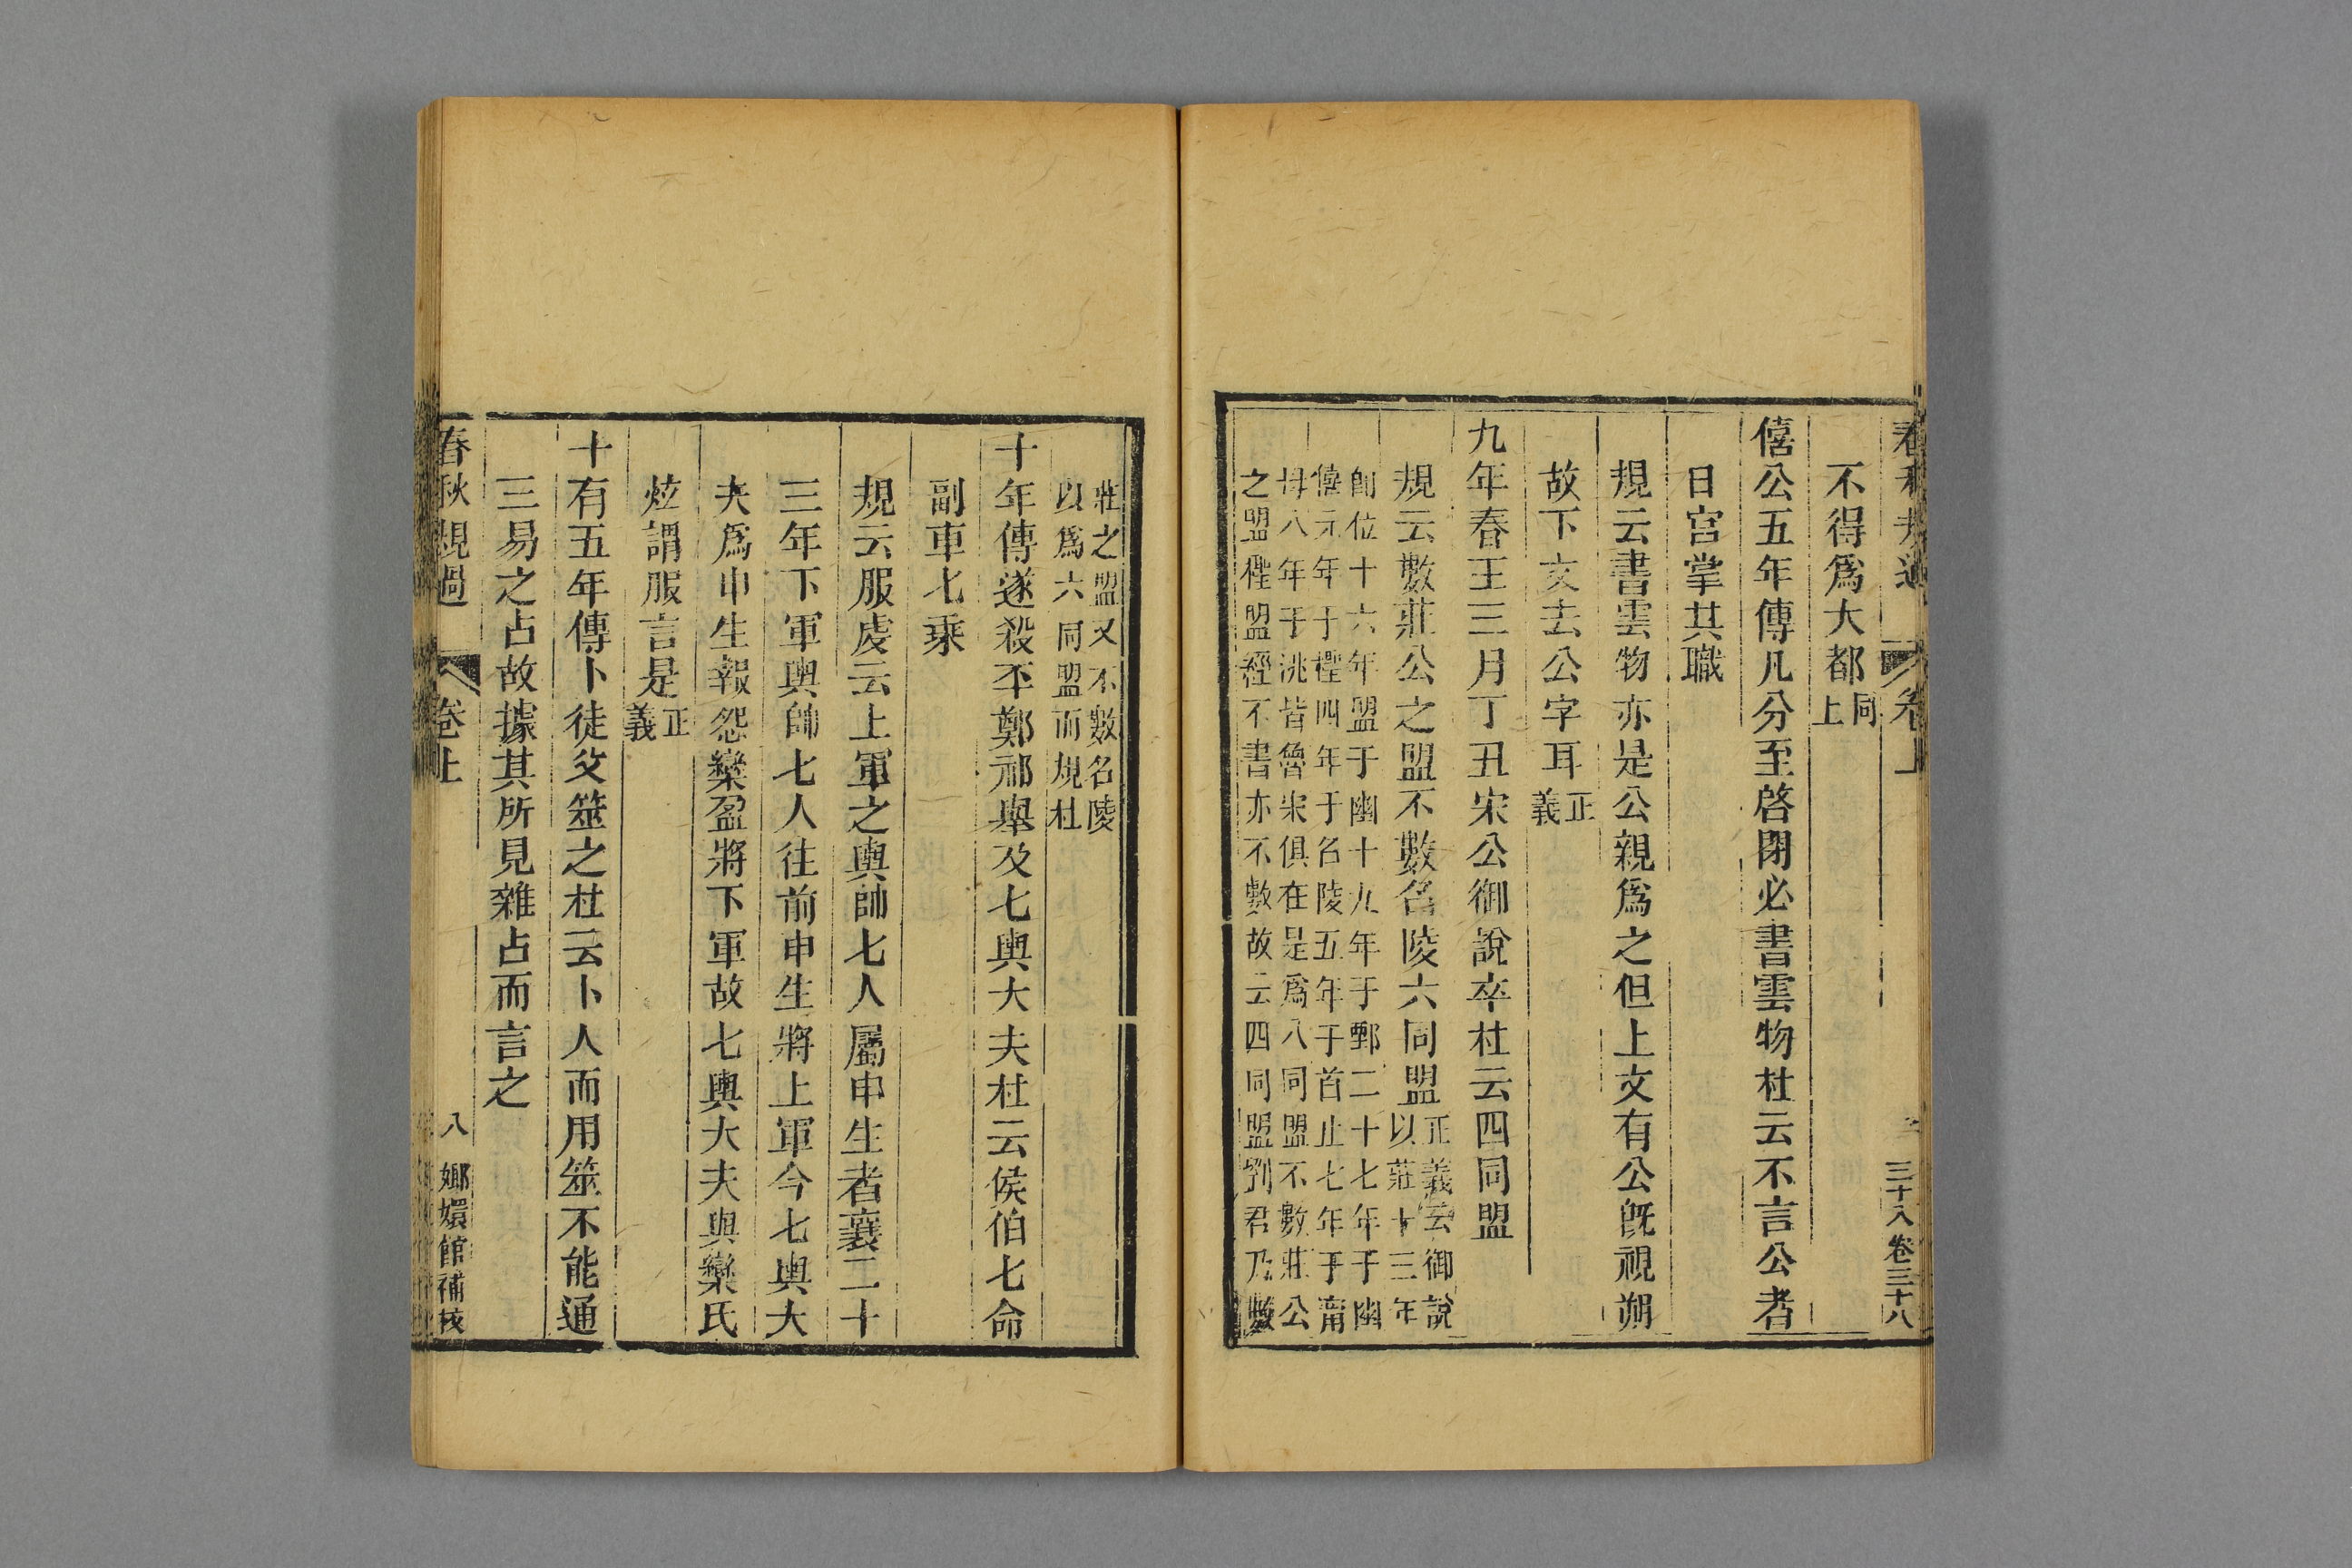 卷上
三十八卷三十八
不得爲大都同上
僖公五年傳凡分至啓閉必書雲物杜云不言公者
日官掌其職
規云書雲物亦是公親爲之但上文有公旣視朔
故下文去公字耳正義
九年春王三月丁丑宋公御說卒杜云四同盟
規云數莊公之盟不數召陵六同盟正義云御說
以莊十三年
卽位十六年盟于幽十九年于鄄二十七年于幽
僖元年于檉四年于召陵五年于首止七年于甯
母八年于洮皆魯宋俱在是爲八同盟不數莊公
之盟檉盟經不書亦不數故云四同盟劉君乃數
莊之盟又不數名陵
以爲六同盟而規杜
十年傳遂殺丕鄭祁舉及七輿大夫杜云侯伯七命
副車七乘
規云服虔云上軍之輿帥七人屬申生者襄二十
三年下軍輿帥七人往前申生將上軍今七輿大
夫爲申生報怨欒盈將下軍故七輿大夫與欒氏
炫謂服言是正義
十有五年傳卜徒父筮之杜云卜人而用筮不能通
三易之占故據其所見雜占而言之
春秋規過
卷上
八
嫏嬛館補校